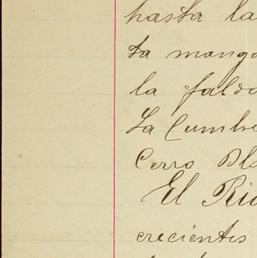 hasta la
ta mang
la fald
La Cumbre
Cerro Bl
El Rio
crecientes